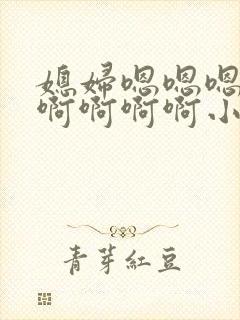 媳婦嗯嗯嗯
啊啊啊啊小
青芽紅豆